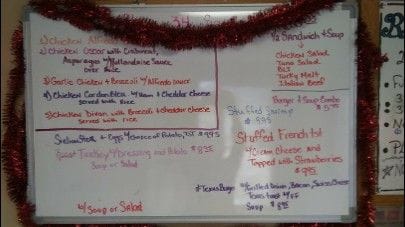 1) Chicken Alf
2) Chicken Oscar with Crabmeat,
Asparagus w/ Hollandaise Sauce
over Rice
3) Garlic Chicken + Broccoli w/ Alfredo Sauce
4) Chicken Cordon Bleu w/ Ham + Cheddar Cheese
Served with Rice
5) Chicken Divan with Broccoli + Cheddar Cheese
Served with Rice
Steak + Eggs w/ choice of Potato, TST $9.95
Roast Turkey w/ Dressing and Potato $8.95
Soup or Salad
w/ Soup or Salad
1/2 Sandwich + Soup
Chicken Salad
Tuna Salad
BLT
Turkey Melt
Italian Beef
Burger + Soup Combo
Stuffed Shrimp
$9.95
Stuffed French Tst
w/ Cream Cheese and
Topped with Strawberries
Texas Burger
w/ Grilled Onion, Bacon, Swiss Cheese
Texas toast w/ FF
Soup $8.95